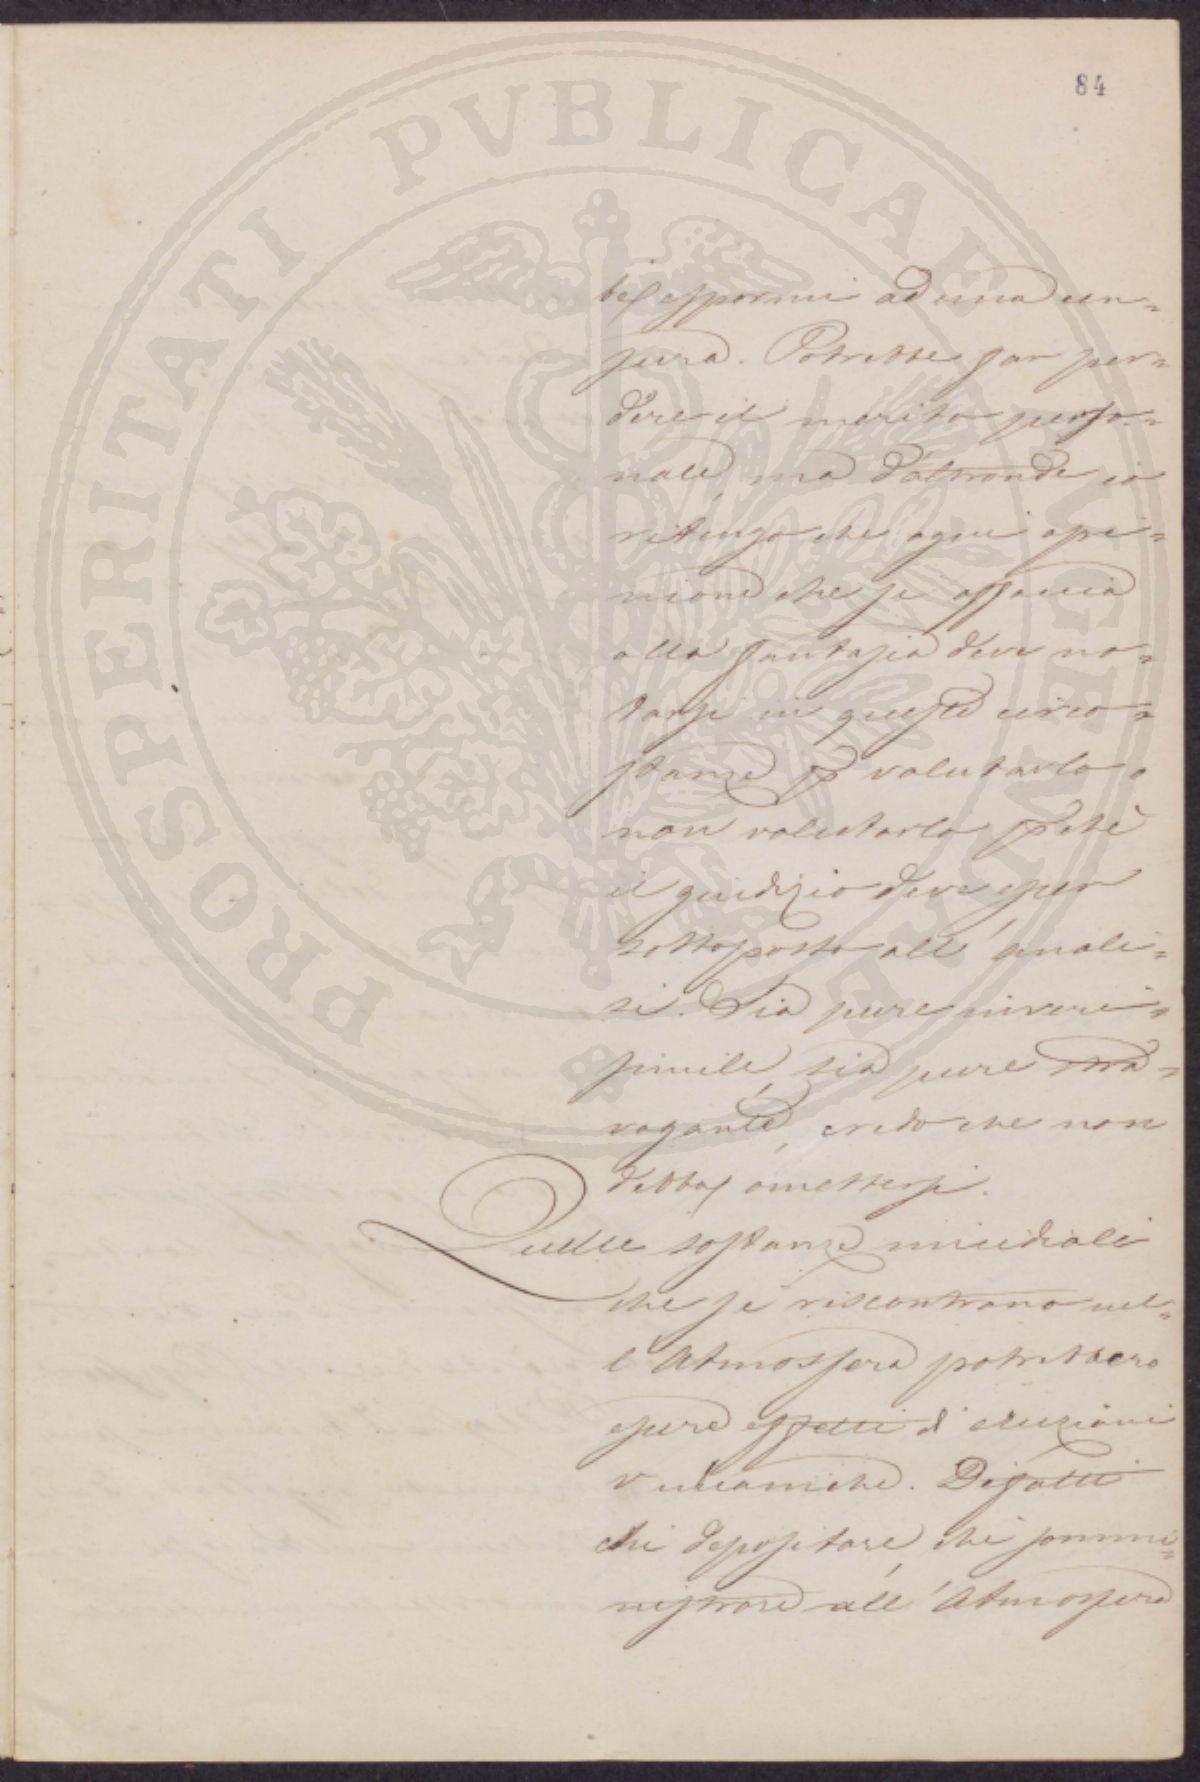 84
PROSPERITATI PVBLICAE AVGENDAE
be espormi ad una cen=
sura. Potrebbe far per=
dere il merito perso=
nale, ma d'altronde io
ritengo che ogni opi=
nione che si affaccia
alla fantasia deve no=
tarsi in queste circo=
stanze p valutarlo o
non valutarlo pchè
il giudizio deve esser
sottoposto all'anali=
si. Sia pure inveri=
simile, sia pure stra=
vagante, credo che non
debba omettersi.
Quelle sostanze micidiali
che si riscontrano nel=
l'Atmosfera potrebbero
essere effetti d'eruzioni
vulcaniche. Difatti
chi depositare, chi sommi=
nistrare all'Atmosfera